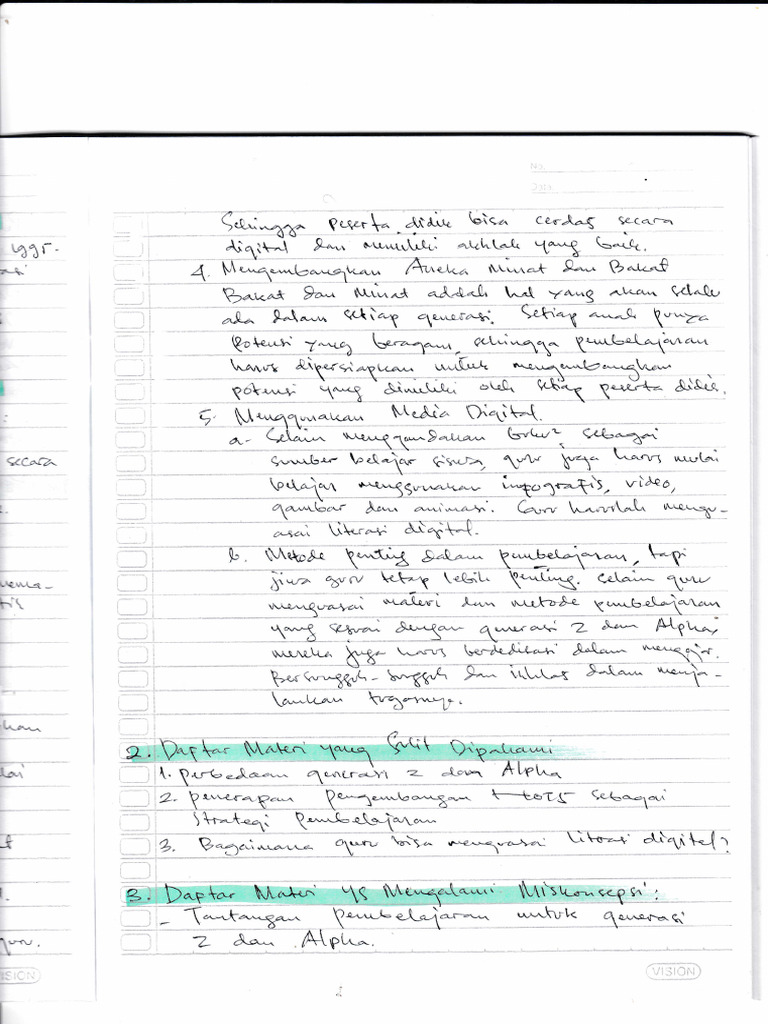 No.
Date
Sehingga peserta didik bisa cerdas secara
digital dan memiliki akhlak yang baik.
4. Mengembangkan Aneka Minat dan Bakat
Bakat dan Minat adalah hal yang akan selalu
ada dalam setiap generasi. Setiap anak punya
potensi yang beragam, sehingga pembelajaran
harus dipersiapkan untuk mengembangkan
potensi yang dimiliki oleh setiap peserta didik.
5. Menggunakan Media Digital.
a. Selain menggandakan buku² sebagai
sumber belajar siswa, guru juga harus mulai
belajar menggunakan infografis, video,
gambar dan animasi. Guru haruslah mengu-
asai literasi digital.
b. Metode penting dalam pembelajaran, tapi
jiwa guru tetap lebih penting. Selain guru
menguasai materi dan metode pembelajaran
yang sesuai dengan generasi Z dan Alpha,
mereka juga harus berdedikasi dalam mengajar.
Bersungguh-sungguh dan ikhlas dalam menja-
lankan tugasnya.
2. Daftar Materi yang Sulit Dipahami
1. perbedaan generasi Z dan Alpha
2. penerapan pengembangan HOTS sebagai
Strategi pembelajaran
3. Bagaimana guru bisa menguasai literasi digital?
3. Daftar Materi yg Mengalami Miskonsepsi:
- Tantangan pembelajaran untuk generasi
Z dan Alpha.
VISION
1995.
secara
guru.